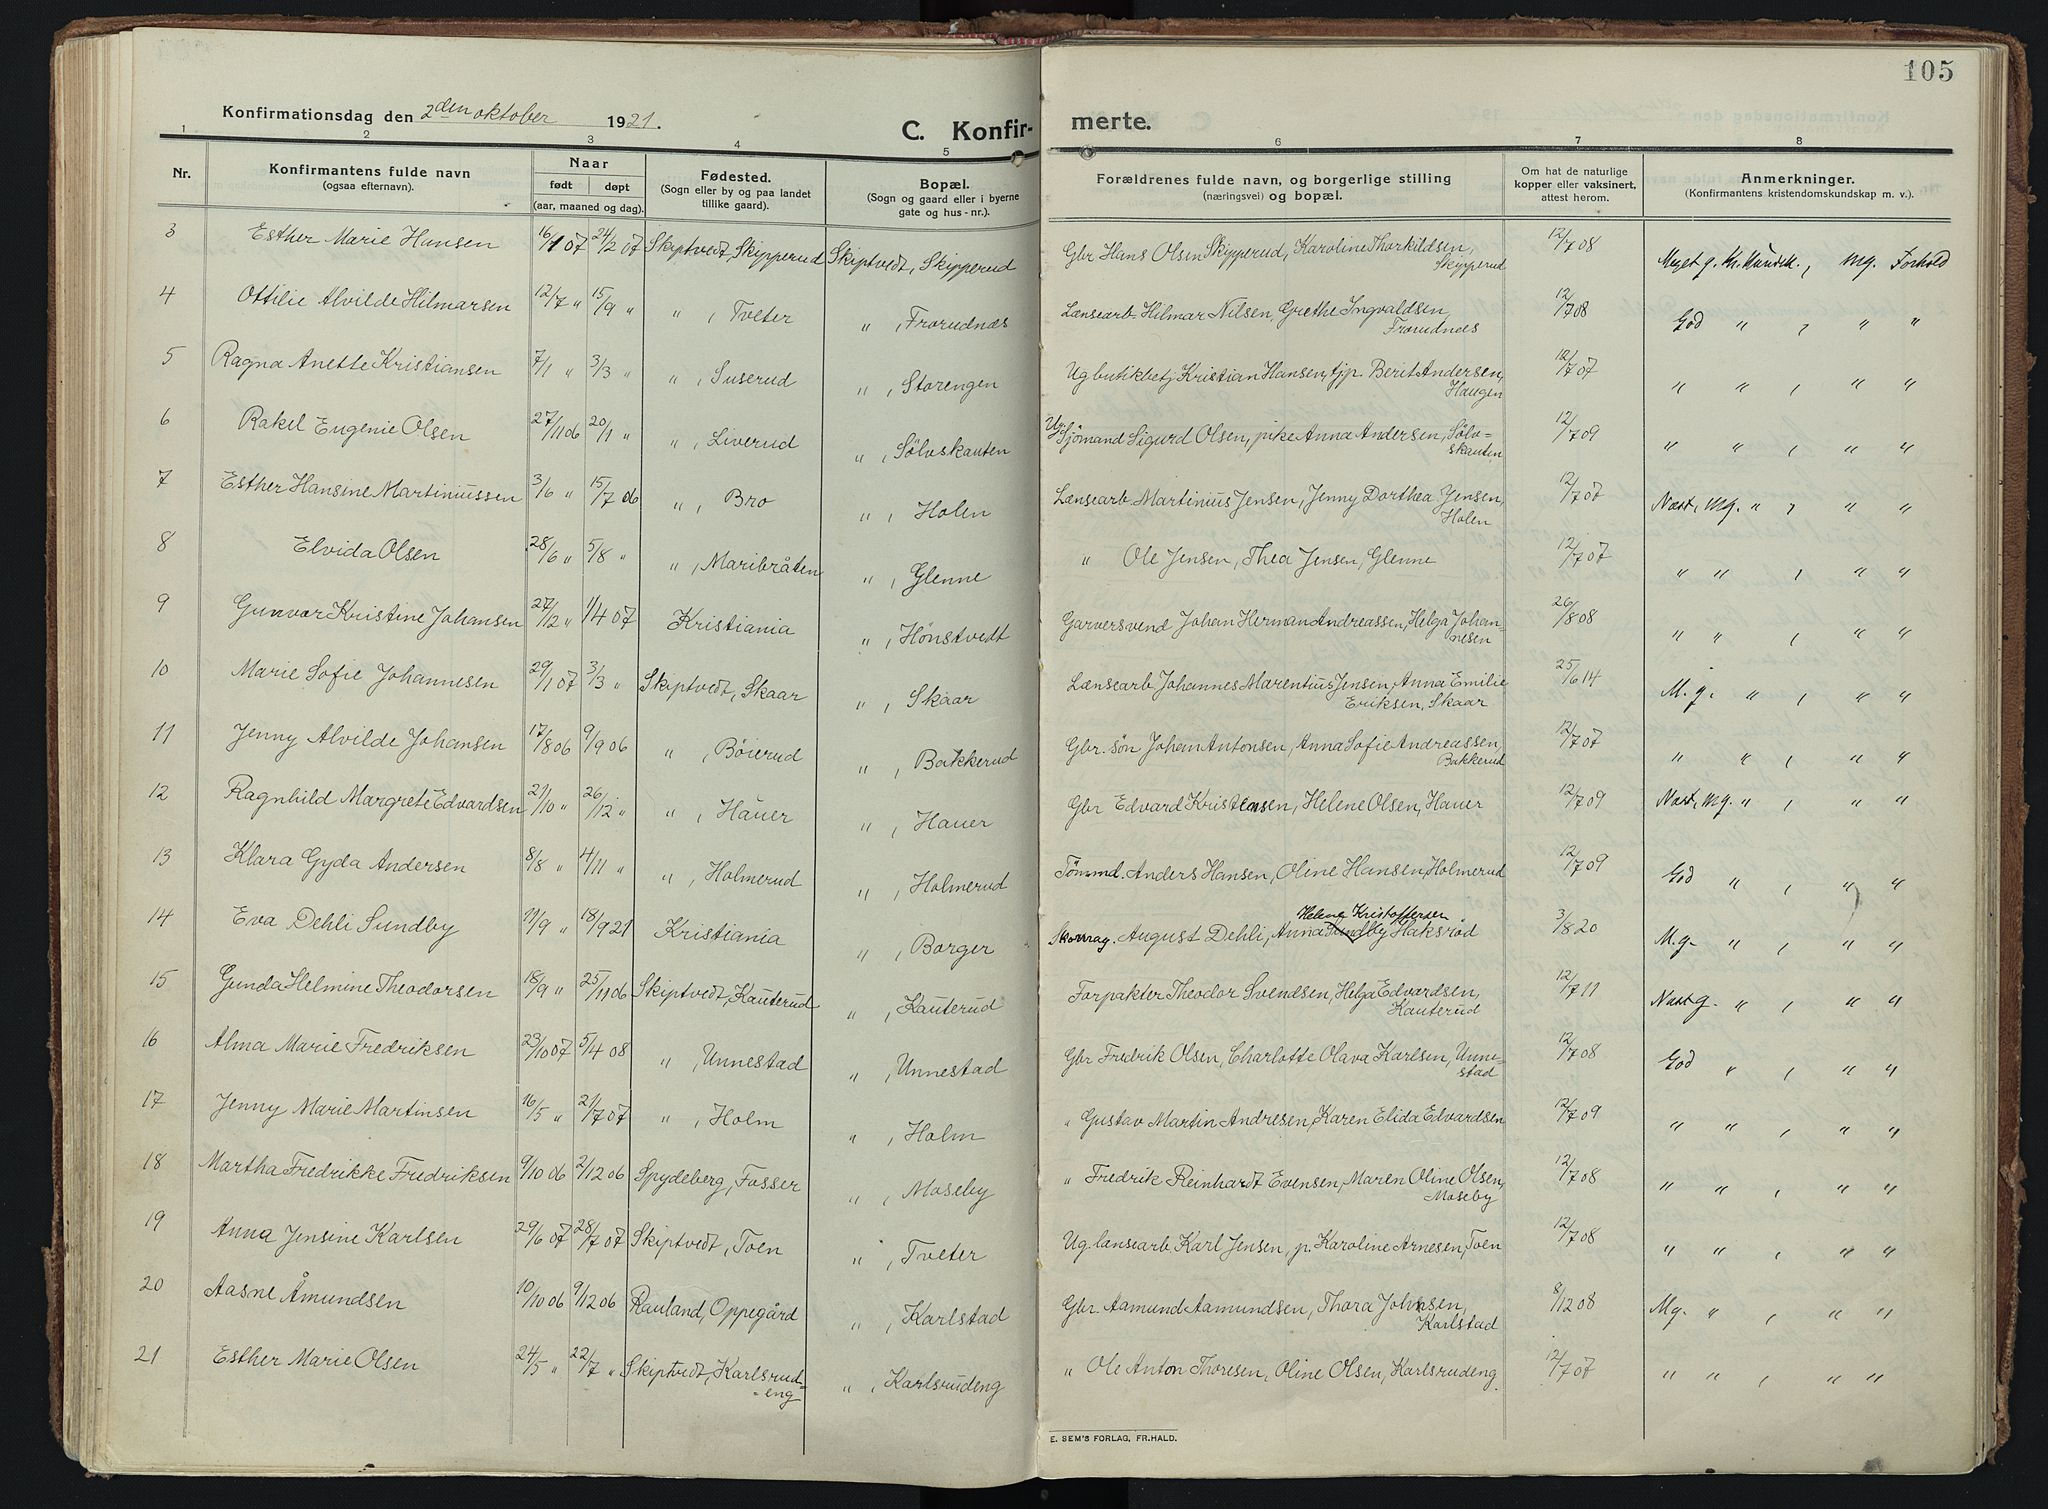 105
Konfirmationsdag den 2den oktober 1921.
C. Konfir- merte.
1 2 3 4 5 6 7 8
Nr.
Konfirmantens fulde navn
(ogsaa efternavn).
Naar
født døpt
(aar, maaned og dag).
Fødested.
(Sogn eller by og paa landet
tillike gaard).
Bopæl.
(Sogn og gaard eller i byerne
gate og hus - nr.).
Forældrenes fulde navn, og borgerlige stilling
(næringsvei) og bopæl.
Om hat de naturlige
kopper eller vaksinert,
attest herom.
Anmerkninger.
(Konfirmantens kristendomskundskap m. v.).
3 Esther Marie Hansen 16/1 07 24/2 07 Skiptvedt, Skipperud Skiptvedt, Skipperud Gbr Hans Olsen Skipperud, Karoline Thorkildsen, Skipperud 12/7 08 Meget g. kr. kundsk., mg. Forhold
4 Ottilie Alvilde Hilmarsen 12/7 " 15/9 " ", Tveter ", Frorudnæs Lænsearb. Hilmar Nilsen, Grethe Ingvaldsen, Frorudnæs 12/7 08 God " , " "
5 Ragna Anette Kristiansen 7/1 " 3/3 " ", Suserud ", Storengen Ug butikbetj Kristian Hansen, tjp. Berit Andersen, Haugen 12/7 07 " " , " "
6 Rakel Eugenie Olsen 27/11 06 20/1 " ", Liverud ", Sölvskauten Ug. Sjömand Sigurd Olsen, pike Anna Andersen, Sölv= skauten 12/7 09 " " , " "
7 Esther Hansine Martiniussen 3/6 " 15/7 06 ", Bro ", Holen Lænsearb. Martinius Jensen, Jenny Dorthea Jensen, Holen 12/7 07 Næst. mg. " , " "
8 Elvida Olsen 28/6 " 5/8 " ", Maribråten ", Glenne " Ole Jensen, Thea Jensen, Glenne 12/7 07 " " , " "
9 Gunvor Kristine Johansen 27/12 " 1/4 07 Kristiania ", Hönstvedt Garversvend Johan Herman Andreassen, Helga Johan= nesen 26/8 08 " " , " "
10 Marie Sofie Johannesen 29/1 07 3/3 " Skiptvedt, Skaar ", Skaar Lænsearb Johannes Marentius Jensen, Anna Emilie Eriksen, Skaar 25/6 14 M. g. " , " "
11 Jenny Alvilde Johansen 17/8 06 9/9 06 ", Böierud ", Bakkerud Gbr. sön Johan Antonsen, Anna Sofie Andreassen, Bakkerud 12/7 07 " " , " "
12 Ragnhild Margrete Edvardsen 21/10 " 26/12 " ", Hauer ", Hauer Gbr Edvard Kristensen, Helene Olsen, Hauer 12/7 09 Næst. mg. " , " "
13 Klara Gyda Andersen 8/8 " 4/11 " ", Holmerud ", Holmerud Tömmd. Anders Hansen, Oline Hansen, Holmerud 12/7 09 God " , " "
14 Eva Dehli Sundby 11/9 " 18/9 21 Kristiania ", Borger Skomag. August Dehli, Anna Sundby Helene Kristoffersen Haksröd 3/8 20 M. g. " , " "
15 Gunda Helmine Theodorsen 18/9 " 25/11 06 Skiptvedt, Kauterud ", Kauterud Forpakter Theodor Svendsen, Helga Edvardsen, Kauterud 12/7 11 Næst g. " , " "
16 Alma Marie Fredriksen 23/10 07 5/4 08 ", Unnestad ", Unnestad Gbr Fredrik Olsen, Charlotte Olava Karlsen, Unne= stad 12/7 08 God " , " "
17 Jenny Marie Martinsen 16/5 " 21/7 07 ", Holm ", Holm " Gustav Martin Andresen, Karen Elida Edvardsen 12/7 09 " " , " "
18 Martha Fredrikke Fredriksen 9/10 06 2/12 06 Spydeberg, Fosser ", Moseby " Fredrik Reinhardt Evensen, Maren Oline Olsen, Moseby 12/7 08 " " , " "
19 Anna Jensine Karlsen 29/6 07 28/7 07 Skiptvedt, Toen ", Tveter Ug. lænsearb Karl Jensen, p. Karoline Arnesen, Toen 12/7 08 " " , " "
20 Aasne Åmundsen 10/10 06 9/12 06 Rauland, Oppegård ", Karlstad Gbr. Aamund Aamundsen, Thora Johnsen, Karlstad 8/12 08 Mg. " , " "
21 Esther Marie Olsen 24/5 " 22/7 " Skiptvedt, Karlsrud= =eng ", Karlsrudeng " Ole Anton Thoresen, Oline Olsen, Karlsrudeng. 12/7 07 " " , " "
E. SEM'S FORLAG, FR.HALD.